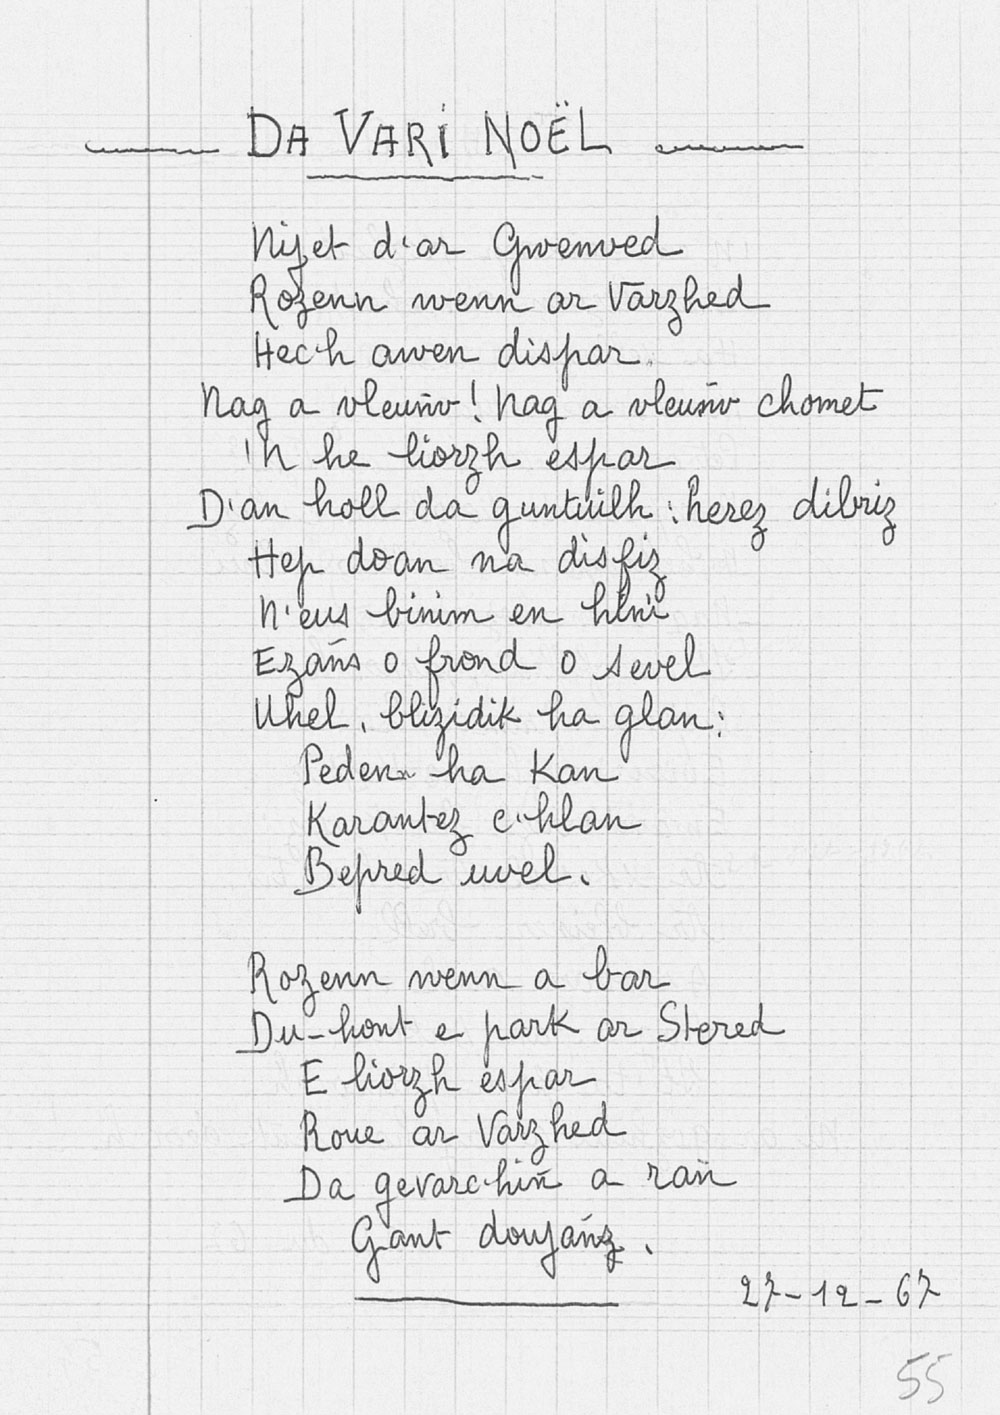 DA VARI NOËL
Nijet d'ar Gwenved
Rozenn wenn ar Varzhed
Hec'h awen dispar.
Nag a vleuñv! Nag a vleuñv chomet
'N he liorzh espar
D'an holl da guntuilh: herez dibriz
Hep doan na disfiz
N'eus binim en hini
Ezañs o frond o sevel
Uhel, blizidik ha glan:
Peden ha Kan
Karantez c'hlan
Bepred uvel.
Rozenn wenn a bar
Du-hont e park ar Stered
E liorzh espar
Roue ar Varzhed
Da gevarc'hiñ a rañ
Gant doujañz.
27-12-67
55